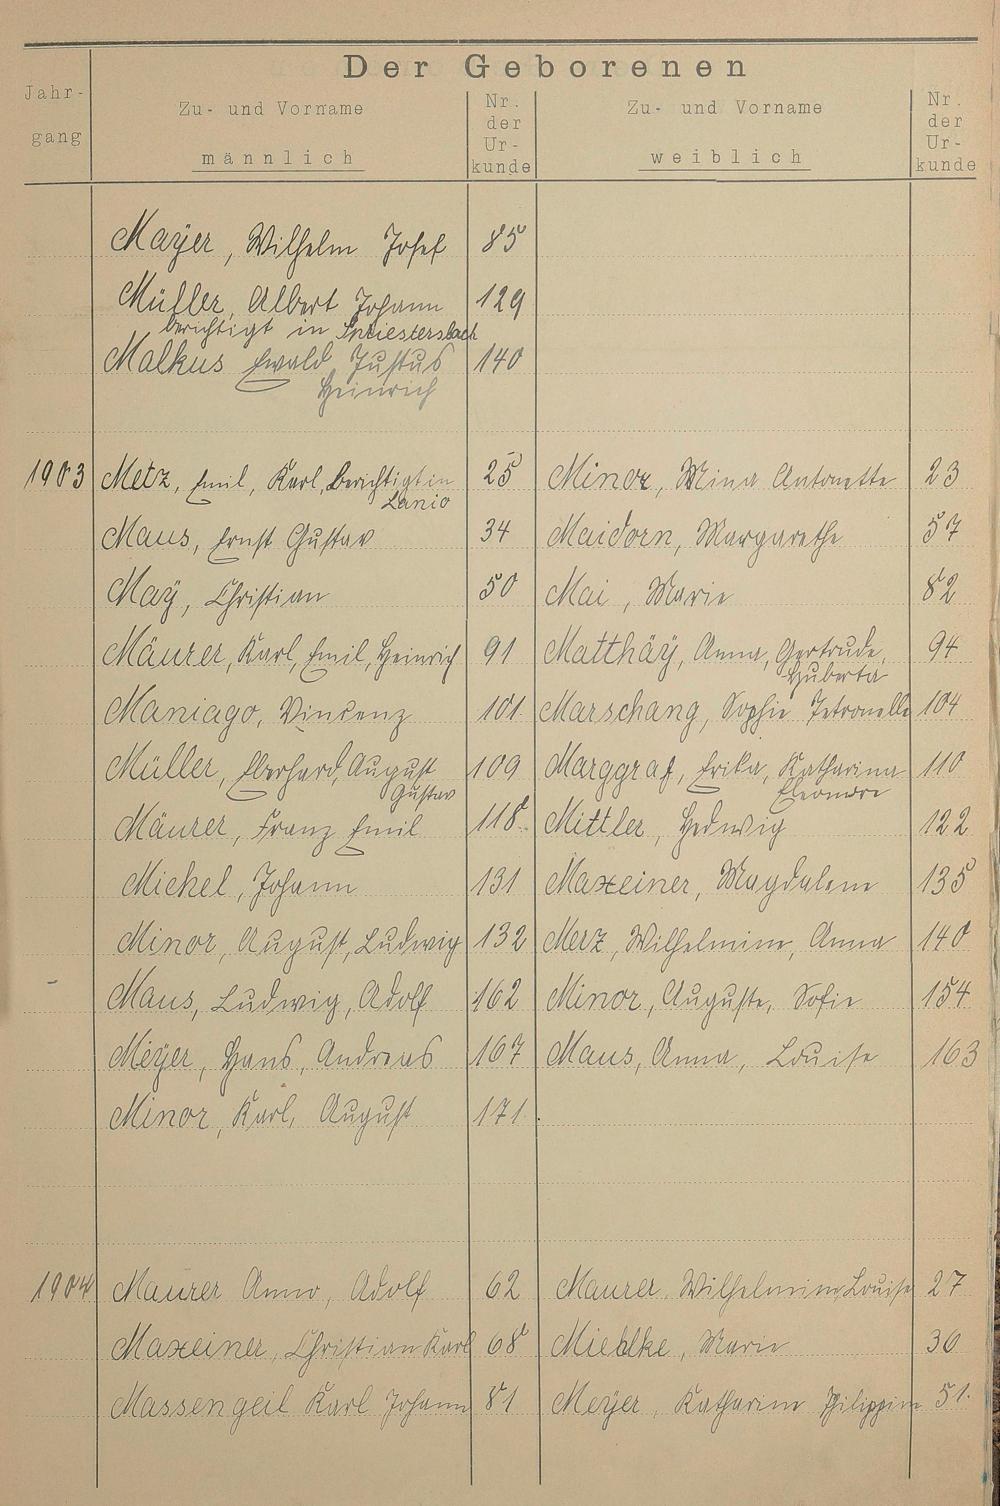 Der Geborenen
Jahr-
gang
Zu- und Vorname
männlich
Nr.
der
Ur-
kunde
Zu- und Vorname
weiblich
Nr.
der
Ur-
kunde
Mayer, Wilhelm Josef 85
Müller, Albert Johann 129
berichtigt in
Malkus Ewald Justus 140
Heinrich
1903 Metz, Emil, Karl, berichtigt in 25 Minor, Mina Antonette 23
Lanio
Maus, Ernst Gustav 34 Maidorn, Margarethe 57
May, Christian 50 Mai, Marie 82
Mäurer, Karl, Emil, Heinrich 91 Matthäy, Anna, Gertrude, 94
Huberta
Maniago, Vinzenz 101 Marschang, Sophie Petronella 104
Müller, Eberhard, August 109 Marggraf, Erika, Katharina 110
Gustav Eleonore
Mäurer, Franz Emil 118 Mittler, Hedwig 122
Michel, Johann 131 Maxeiner, Magdalene 135
Minor, August, Ludwig 132 Merz, Wilhelmine, Anna 140
Maus, Ludwig, Adolf 162 Minor, Auguste, Sofie 154
Meyer, Hans, Andreas 167 Maus, Anna, Louise 163
Minor, Karl, August 171
1904 Maurer Anno, Adolf 62 Maurer Wilhelmine Louise 27
Maxeiner, Christian Karl 68 Mieblke, Marie 30
Massengeil Karl Johann 81 Meyer, Katharine Philippine 51